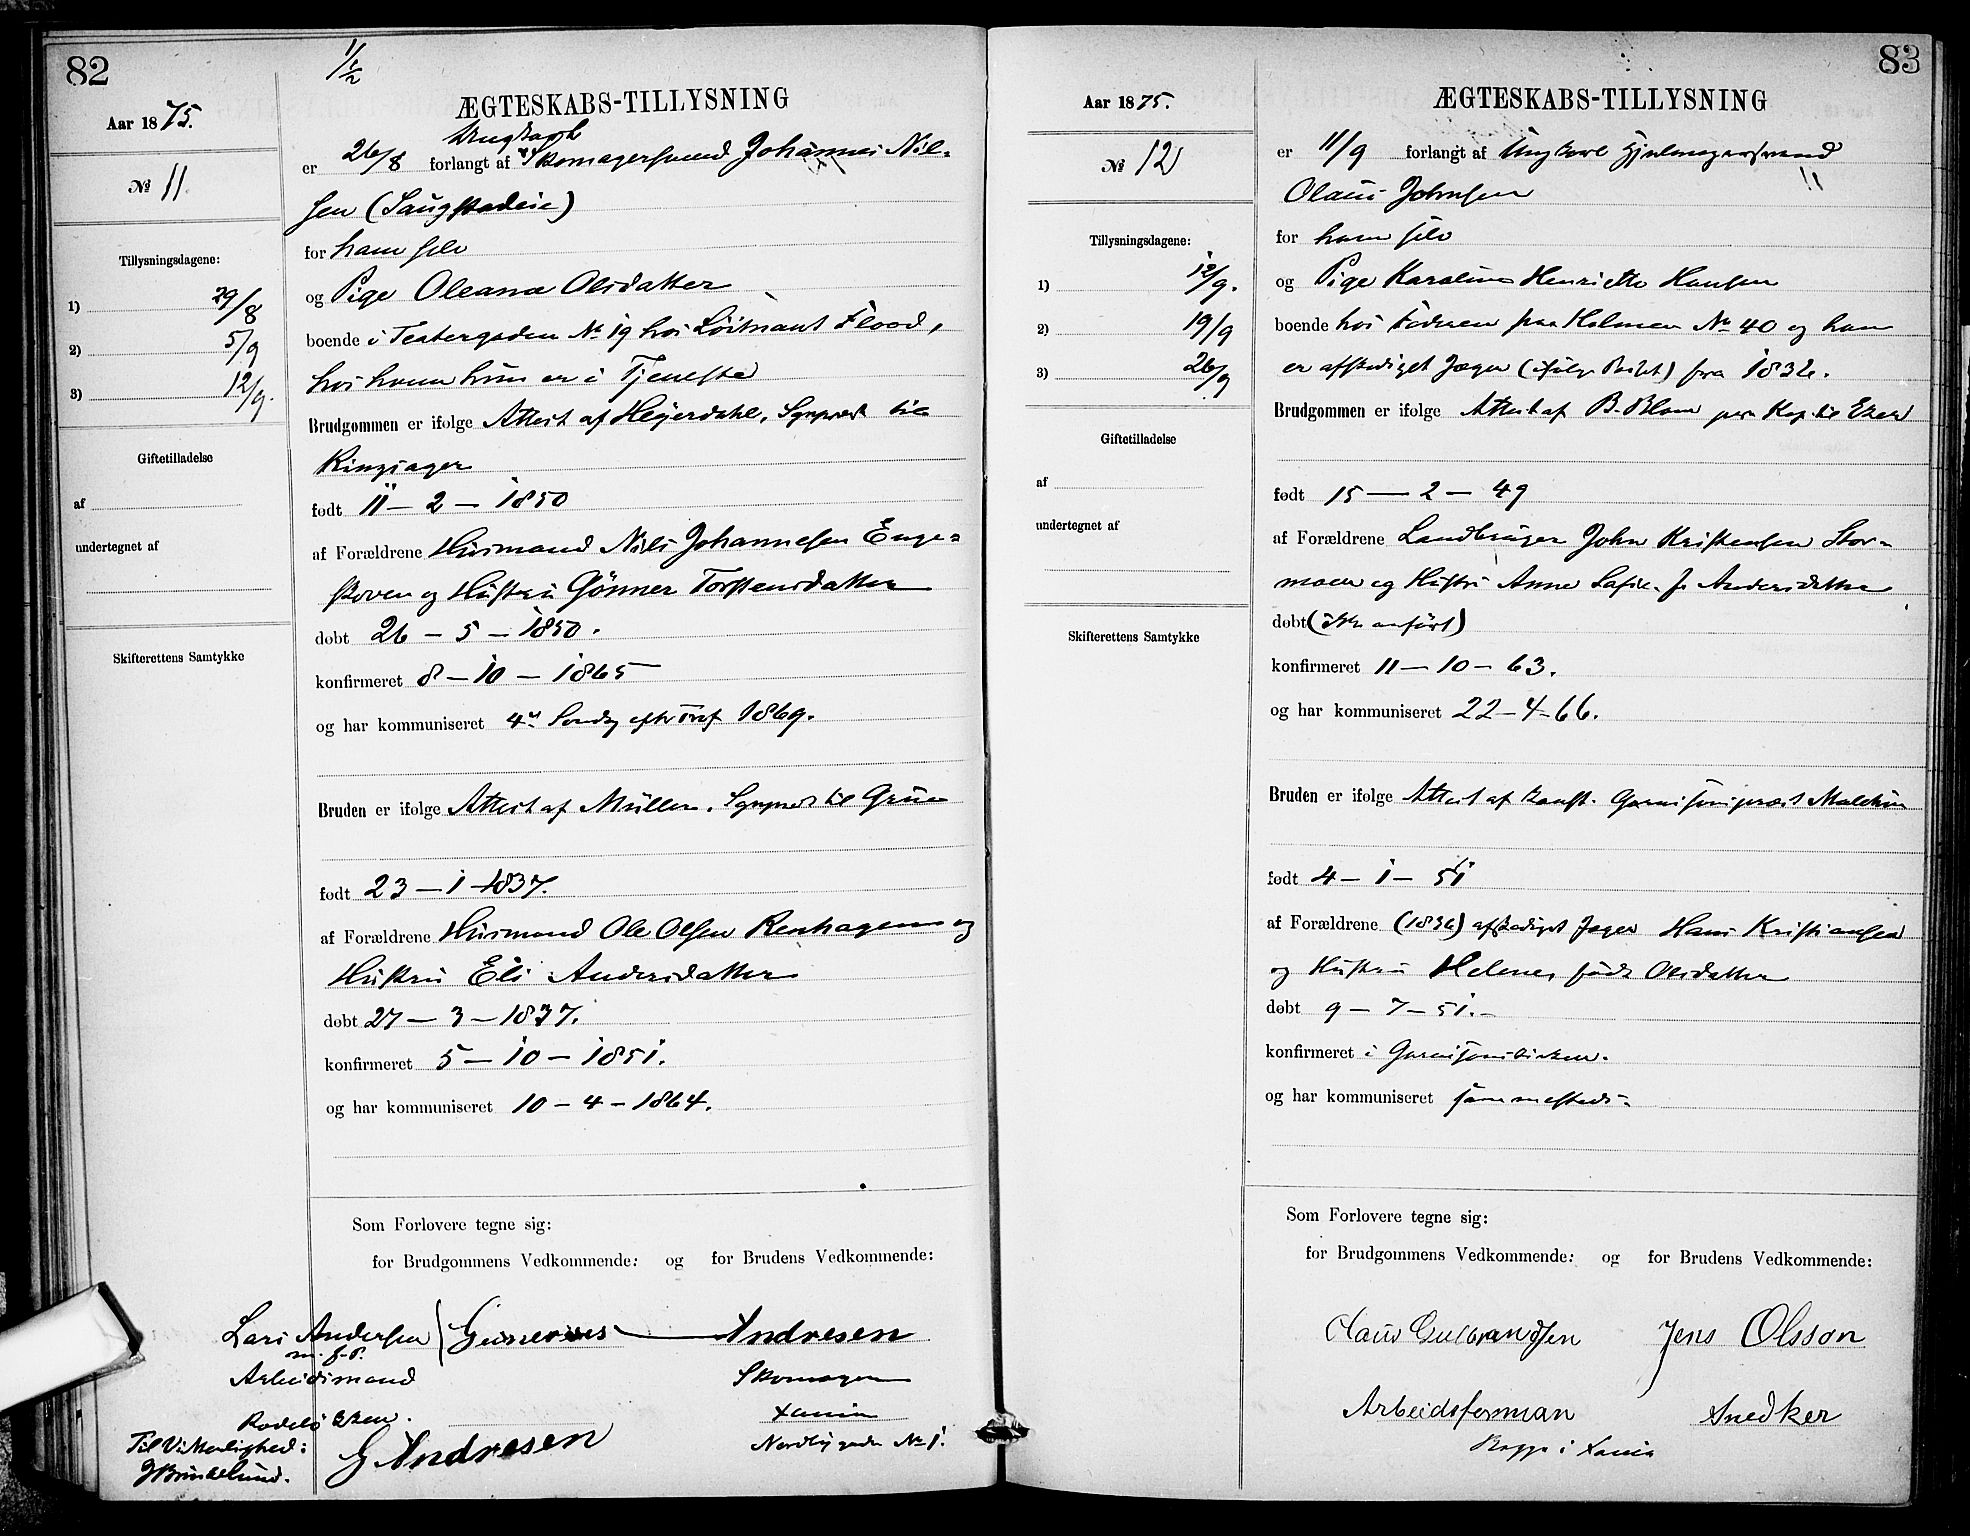 82
1/2
ÆGTESKABS-TILLYSNING
Aar 1875.
№ 11.
Tillysningsdagene:
1) 29/8
2) 5/9
3) 12/9.
Giftetilladelse
af
undertegnet af
Skifterettens Samtykke
Ungkarl
er 26/8 forlangt af Skomagersvend Johannes Nil-
sen (Saugstadeie)
for ham selv
og Pige Oleana Olsdatter
boende i Teatergaden № 19 hos Löitnant Flood,
hos hvem hun er i Tjeneste
Brudgommen er ifølge Attest af Heyerdahl, Sgnprest til
Ringsager
født 11 - 2 - 1850
af Forældrene Husmand Nils Johannesen Enge-
skoven og Hustru Gönner Torstensdatter
døbt 26 - 5 - 1850.
konfirmeret 8 - 10 - 1865
og har kommuniseret 4de Sondg eftr Tref 1869.
Bruden er ifølge Attest af Müller, Sgnprest til Grue
født 23 - 1 - 1837.
af Forældrene Husmand Ole Olsen Renhagen og
Hustru Eli Andersdatter
døbt 27 - 3 - 1837.
konfirmeret 5 - 10 - 1851.
og har kommuniseret 10 - 4 - 1864.
Som Forlovere tegne sig:
for Brudgommens Vedkommende: og for Brudens Vedkommende:
Lars Andersen Andresen
m. f. P.
Arbeidsmand Skomager
Xania
Nordbygaden № 1.
Til Vitterlighed:
G Andresen
83
ÆGTESKABS-TILLYSNING
Aar 1875.
№ 12
Tillysningsdagene:
1) 12/9.
2) 19/9
3) 26/9
Giftetilladelse
af
undertegnet af
Skifterettens Samtykke
er 11/9 forlangt af Ungkarl Hjulmagersvend
Olaus Johnsen
for ham selv
og Pige Karoline Henriette Hansen
boende hos Faderen paa Holmen № 40 og han
er afskediget Jæger (ifölge Paset) fra 1836.
Brudgommen er ifølge Attest af B. Blom per. Kap. til Eker
født 15 - 2 - 49
af Forældrene Landbruger John Kristensen Stor-
moen og Hustru Anne Sofie f. Andersdatter
døbt (ikke anfört)
konfirmeret 11 - 10 - 63.
og har kommuniseret 22 - 4 - 66.
Bruden er ifølge Attest af konst. Garnisonsprest
født 4 - 1 - 51
af Forældrene (1836) afskediget Jæger Hans Kristiansen
og Hustru Helene, född Olsdatter
døbt 9 - 7 - 51. -
konfirmeret i Garnisonskirken.
og har kommuniseret sammesteds.
Som Forlovere tegne sig:
for Brudgommens Vedkommende: og for Brudens Vedkommende:
Claus Gulbrandsen Jens Olsson
Arbeidsforman Snedker
i Xania